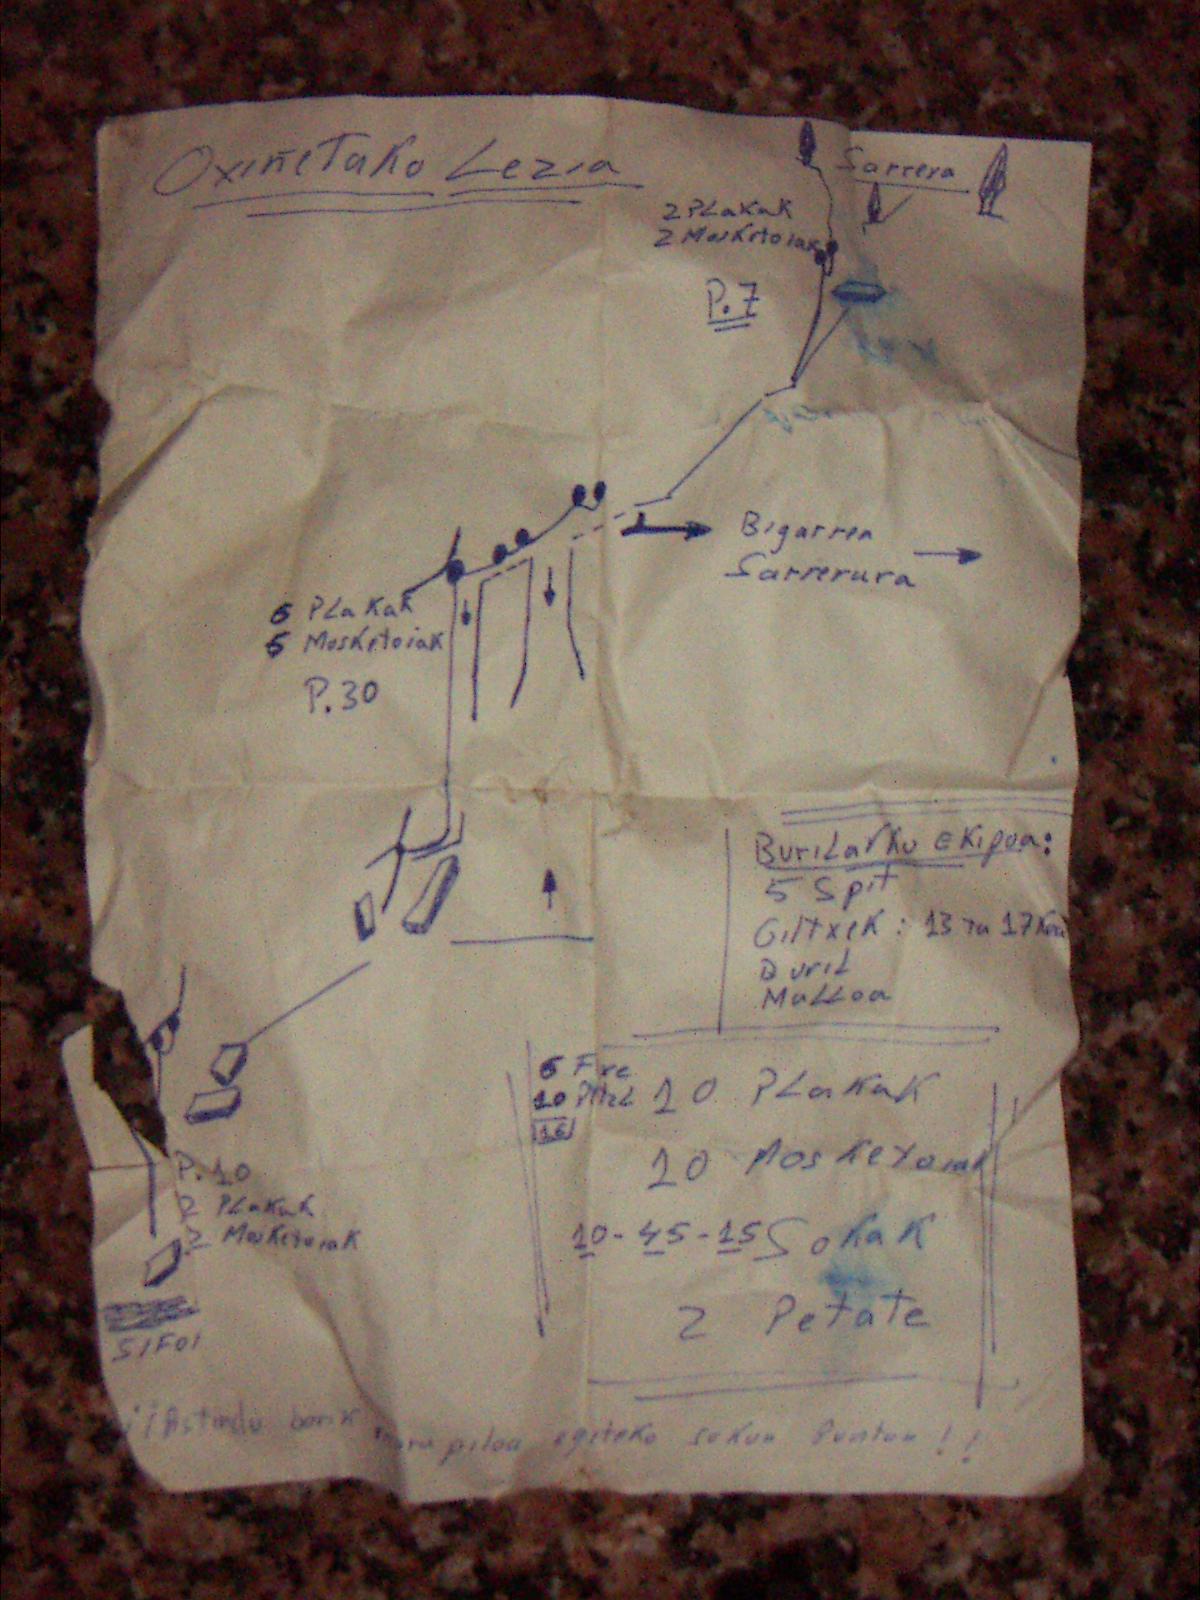 Oxiñetako Lezia
Sarrera
2 Plakak
2 Mosketoiak
P.7
Bigarren
Sarrerura
6 Plakak
6 Mosketoiak
P.30
Burilatku ekipoa:
5 Spit
Giltxek: 13 ta 17koa
Buril
Malloa
6 Fxe
10 Petzl
16
10 Plakak
10 Mosketoiak
10-45-15 Sokak
2 Petate
P.10
2 Plakak
2 Mosketoiak
SIFOI
¡¡Astindu barik piloa egiteko sokan puntan!!